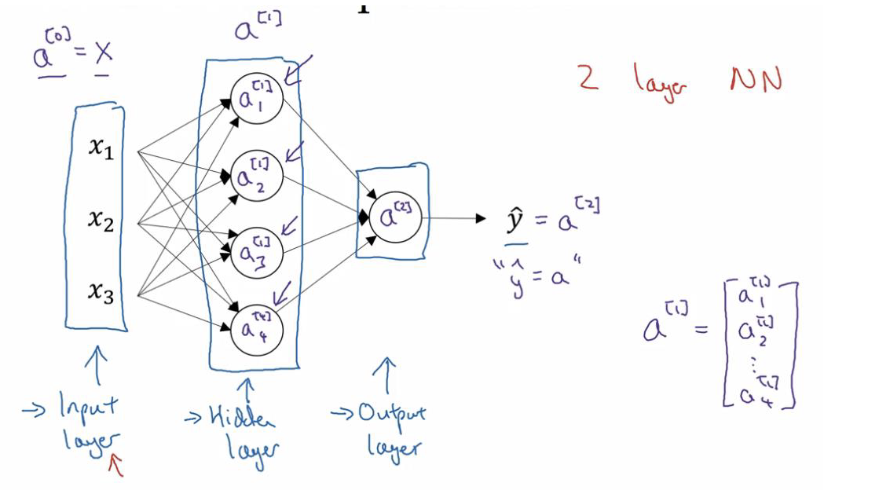 a^[1]
a^[0] = X
2 layer NN
x₁
x₂
x₃
a₁^[1]
a₂^[1]
a₃^[1]
a₄^[1]
a^[2]
ŷ = a^[2]
"ŷ = a"
a^[1] = [a₁^[1]
a₂^[1]
⋮
a₄^[1]]
→ Input
layer
→ Hidden
layer
→ Output
layer